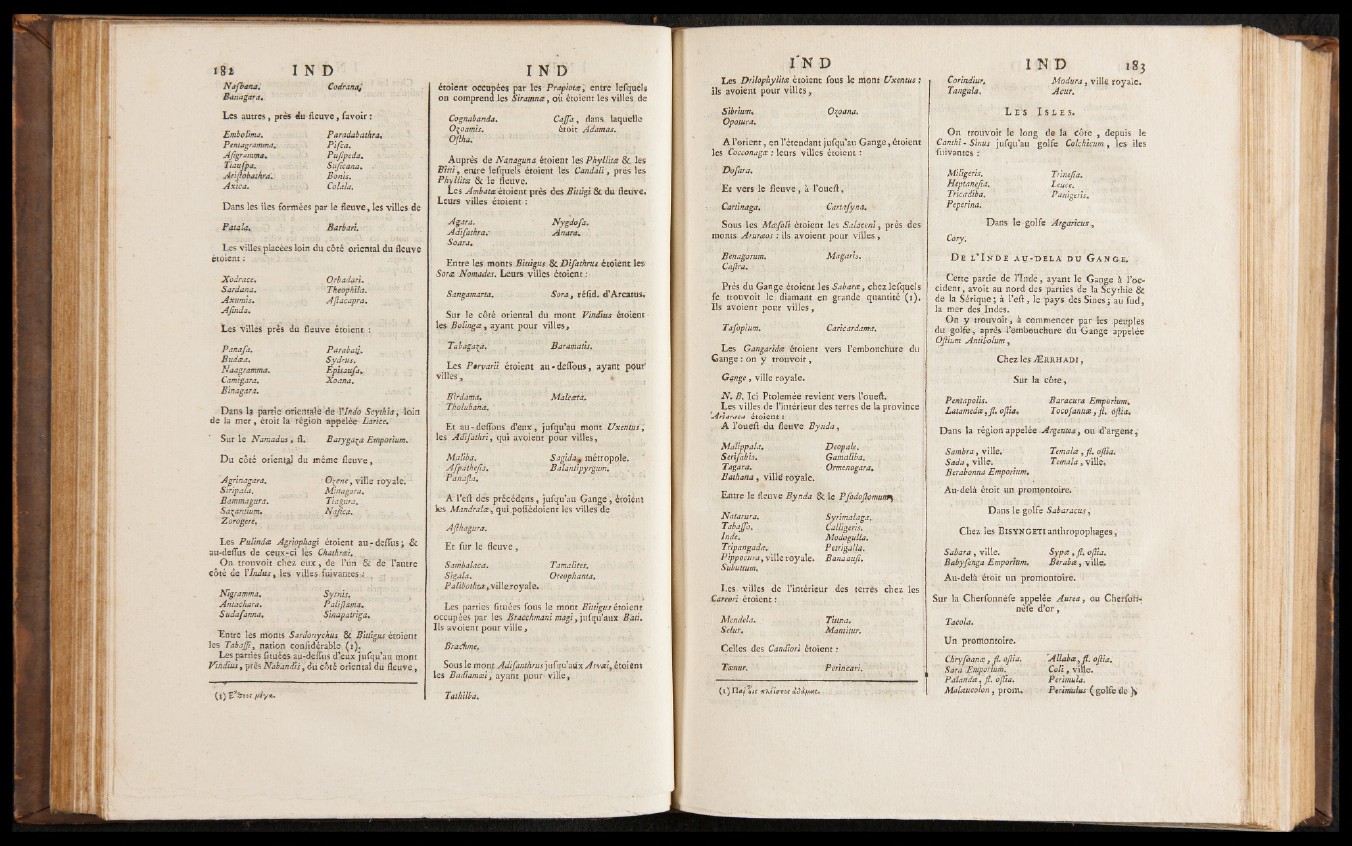 182 IND
Nasbana. Codrana,
Banagara.
Les autres, près du fleuve, savoir :
Embolima. Paradabathra.
Pentagramma. Pisca.
Asigramma. Pasipeda.
Tiauspa. Susicana.
Aristobathra. Bonis.
Axica. Colala.
Dans les îles formées par le fleuve, les villes de
Patala. Barbari.
Les villes placées loin du côté oriental du fleuve
étoient :
Xodrace. Orbadari.
Sardana. Theophila.
Axumis. Astacapra.
Asinda.
Les villes près du fleuve étoient :
Panasa. Parabali.
Budæa. Sydrus.
Naagramma. Epitausa.
Camigara. Xoana.
Binagara.
Dans la partie orientale de l'Indo Scythia, loin
de la mer, étoit la région appelée Larice.
Sur le Namadus, fl. Barygaza Emporium.
Du côté oriental du même fleuve,
Agrinagara. Ozene, ville royale.
Siripala. Minagara.
Bammagura. Tiagura.
Sazantium. Nasica.
Zorogere.
Les Pulindæ Agriophagi étoient au-dessus ; &
au-dessus de ceux-ci les Chathræi.
On trouvoit chez eux, de l'un & de l'autre
côté de l'Indus, les villes suivantes :
Nigramma. Syrnis.
Antachara. Palistama.
Sudasanna. Sinapatriga.
Entre les monts Sardonychus & Bitigus étoient
les Tabassi, nation considérable (1).
Les parties situées au-dessus d'eux jusqu'au mont
Vindius, près Nabandis, du côté oriental du fleuve,
(1) Ἔθνος μέγα.
IND
étoient occupées par les Prapiotæ, entre lesquels
on comprend les Siramnæ, où étoient les villes de
Cognabanda. Cassa, dans laquelle
Ozoamis. étoit Adamas.
Ostha.
Auprès de Nanaguna étoient les Phyllitæ & les
Bitti, entre lesquels étoient les Candali, près les
Phyllitæ & le fleuve.
Les Ambatæ étoient près des Bittigi & du fleuve.
Leurs villes étoient :
Agara. Nygdosa.
Adisathra. Anara.
Soara.
Entre les monts Bitigus & Disathrus étoient les
Soræ Nomades. Leurs villes étoient :
Sangamarta. Sora, résid. d'Arcatus.
Sur le côté oriental du mont Vindius étoient
les Bolingæ, ayant pour villes,
Tabagaza. Baramatis.
Les Porvarii étoient au-dessous, ayant pour
villes,
Birdama. Maleæta.
Tholubana.
Et au-dessous d'eux, jusqu'au mont Uxentus,
les Adisathri, qui avoient pour villes,
Maliba. Sagida, métropole.
Aspathesis. Balantipyrgum.
Panasta.
A l'est des précédens, jusqu'au Gange, étoient
les Mandralæ, qui possédoient les villes de
Asthagura.
Et sur le fleuve,
Sambalaca. Tamalites.
Sigala. Oreophanta.
Palibothræ, ville royale.
Les parties situées sous le mont Bitigus étoient
occupées par les Bracchmani magi, jusqu'aux Bati.
Ils avoient pour ville,
Brachme.
Sous le mont Adisanthrus jusqu'aux Arvai, étoient
les Badiamæi, ayant pour ville,
Tathilba.
IND
Les Drilophylitæ étoient sous le mont Uxentus :
ils avoient pour villes,
Sibrium. Ozoana.
Opotura.
A l'orient, en l'étendant jusqu'au Gange, étoient
les Cocconagæ : leurs villes étoient :
Dosara.
Et vers le fleuve, à l'ouest,
Cartinaga. Cartasyna.
Sous les Mæsoli étoient les Salaceni, près des
monts Aruraos : ils avoient pour villes,
Benagorum. Magaris.
Castra.
Près du Gange étoient les Sabaræ, chez lesquels
se trouvoit le diamant en grande quantité (1).
Ils avoient pour villes,
Tasopium. Caricardama.
Les Gangaridæ étoient vers l'embouchure du
Gange : on y trouvoit,
Gange, ville royale.
N. B. Ici Ptolemée revient vers l'ouest.
Les villes de l'intérieur des terres de la province
Ariaraca étoient :
A l'ouest du fleuve Bynda,
Malippala. Deopale.
Serisabis. Gamaliba.
Tagara. Ormenogara.
Bathana, ville royale.
Entre le fleuve Bynda & le Psodostomum,
Natarura. Syrimalaga.
Tabasso. Calligeris.
Inde. Modogulla.
Tripangada. Petrigalla.
Pippocura, ville royale. Banaausi.
Subuttum.
Les villes de l'intérieur des terres chez les
Careori étoient :
Mendela. Tiuna.
Selur. Mantitur.
Celles des Candiori étoient :
Tænur. Perincari.
(1) Παρ' οἷς πλεῖστος ἀδάμας.
IND 183
Corindiur. Modura, ville royale.
Tangala. Acur.
LES ISLES.
On trouvoit le long de la côte, depuis le
Canthi-Sinus jusqu'au golfe Colchicum, les îles
suivantes :
Miligeris. Trinesia.
Heptanesia. Leuce.
Tricadiba. Panigeris.
Peperina.
Dans le golfe Argaricus,
Cory.
DE L'INDE AU-DELA DU GANGE.
Cette partie de l'Inde, ayant le Gange à l'oc-
cident, avoit au nord des parties de la Scythie &
de la Sérique ; à l'est, le pays des Sines ; au sud,
la mer des Indes.
On y trouvoit, à commencer par les peuples
du golfe, après l'embouchure du Gange appelée
Ostium Antibolum,
Chez les ÆRRHADI,
Sur la côte,
Pentapolis. Baracura Emporium.
Latamedæ, fl. ostia. Tocosannæ, fl. ostia.
Dans la région appelée Argentea, ou d'argent,
Sambra, ville. Temala, fl. ostia.
Sada, ville. Temala, ville.
Berabonna Emporium.
Au-delà étoit un promontoire.
Dans le golfe Sabaracus,
Chez les BISYNGETI anthropophages,
Sabara, ville. Sypæ, fl. ostia.
Babysenga Emporium. Berabæ, ville.
Au-delà étoit un promontoire.
Sur la Chersonnèse appelée Aurea, ou Cherson-
nèse d'or,
Tacola.
Un promontoire.
Chrysoanæ, fl. ostia. Allabæ, fl. ostia.
Sara Emporium. Coli, ville.
Palandæ, fl. ostia. Perimula.
Malæucolon, prom. Perimulus (golfe de).